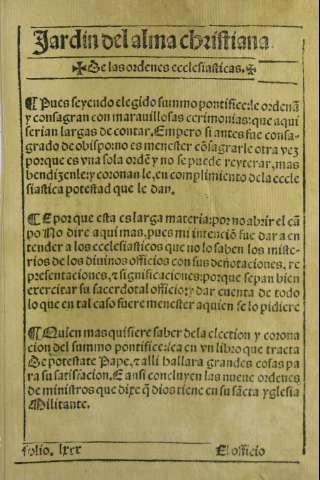 Jardin del alma christiana.
✠ De las ordenes ecclesiasticas. ✠
¶ Pues seyendo elegido summo pontifice: le ordenã
y consagran con marauillosas cerimonias: que aqui
serian largas de contar. Empero si antes fue consa-
grado de obispo: no es menester cõsagrarle otra vez
porque es vna sola ordẽ y no se puede reyterar, mas
bendizenle: y coronan le, en complimiento dela eccle
siastica potestad que le dan.
¶ E por que esta es larga materia: por no abrir el cã
po No dire aqui mas, pues mi intenciõ fue dar a en
tender a los ecclesiasticos que no lo saben los miste-
rios de los diuinos officios con sus deñotaciones, re
presentaciones, ⁊ significaciones: porque sepan bien
exercitar su sacerdotal officio: y dar cuenta de todo
lo que en tal caso fuere menester a quien se lo pidiere
¶ Quien mas quisiere saber de la election y corona
cion del summo pontifice: lea en vn libro que tracta
De potestate Pape, ⁊ alli hallara grandes cosas pa
ra su satisfacion. E ansi concluyen las nueue ordenes
de ministros que dixe q̃ dios tiene en su sãcta yglesia
Militante.
folio. lxxx El officio